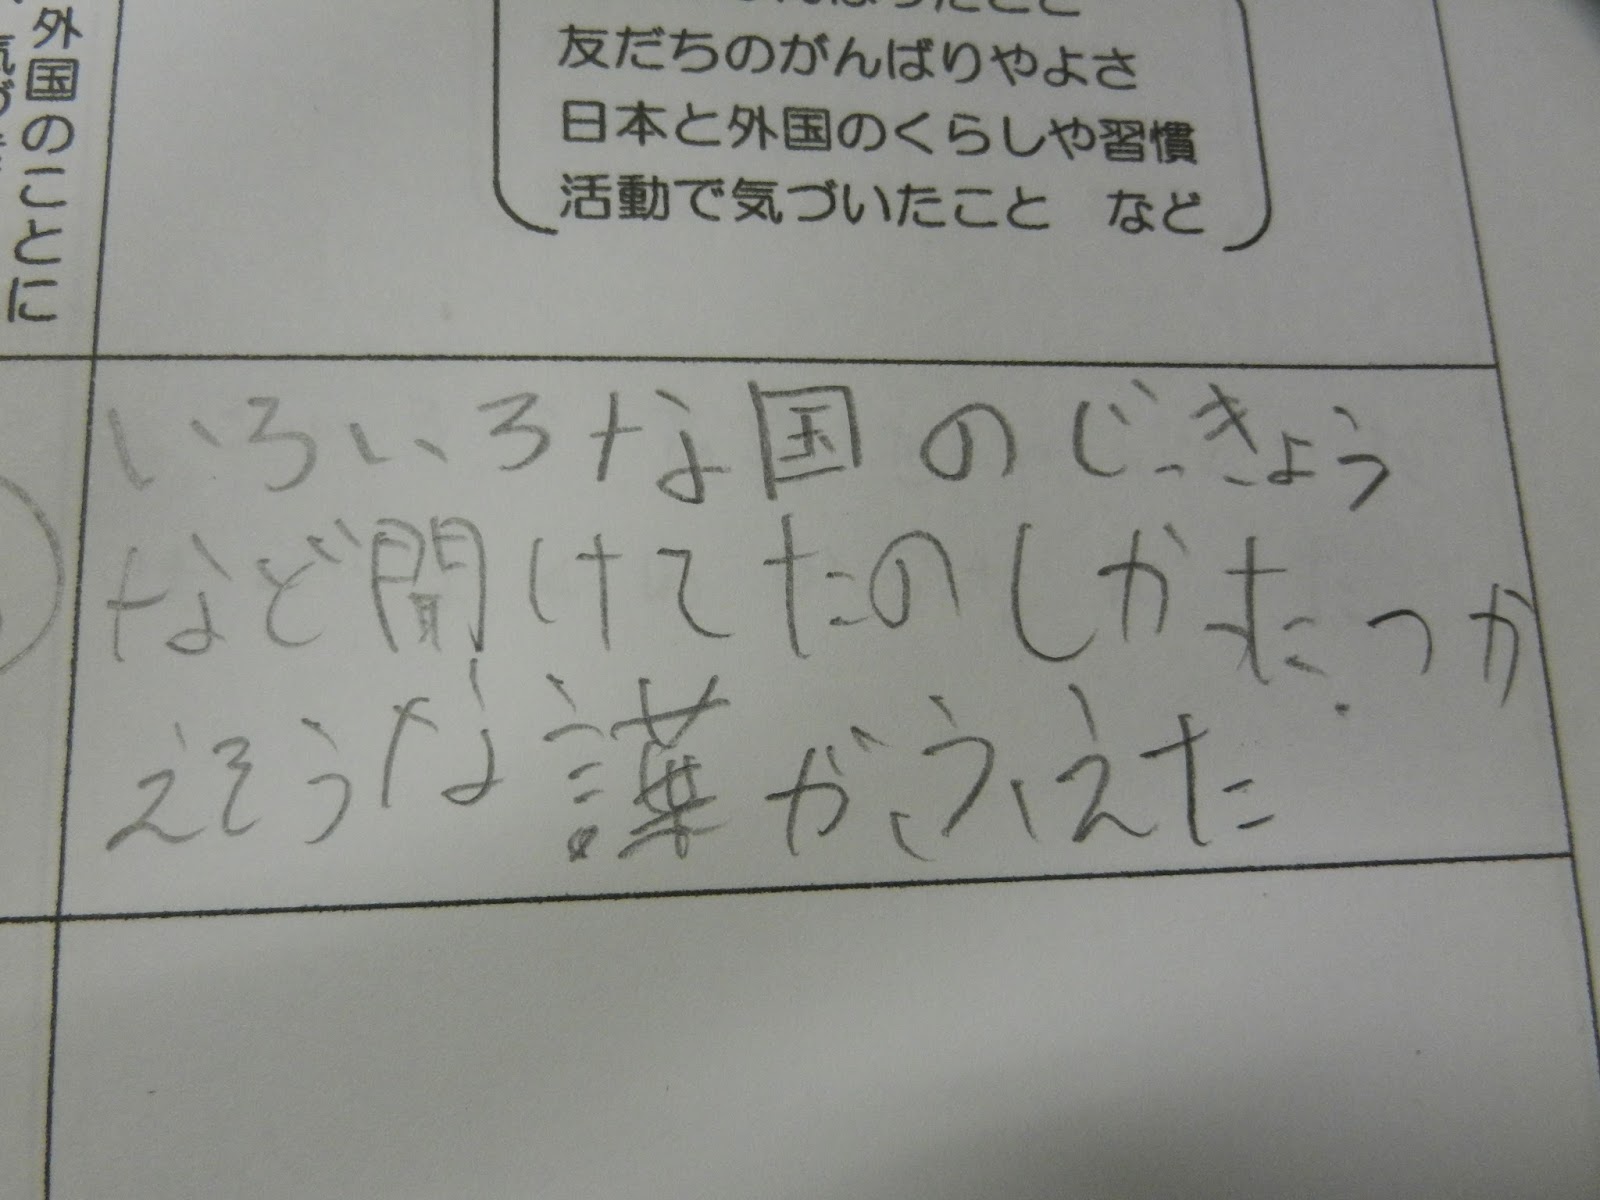 友だちのがんばりやよさ
日本と外国のくらしや習慣
活動で気づいたこと　など
外国のことに
いろいろな国のじっきょう
など聞けてたのしかた。つか
えそうな
がふえた